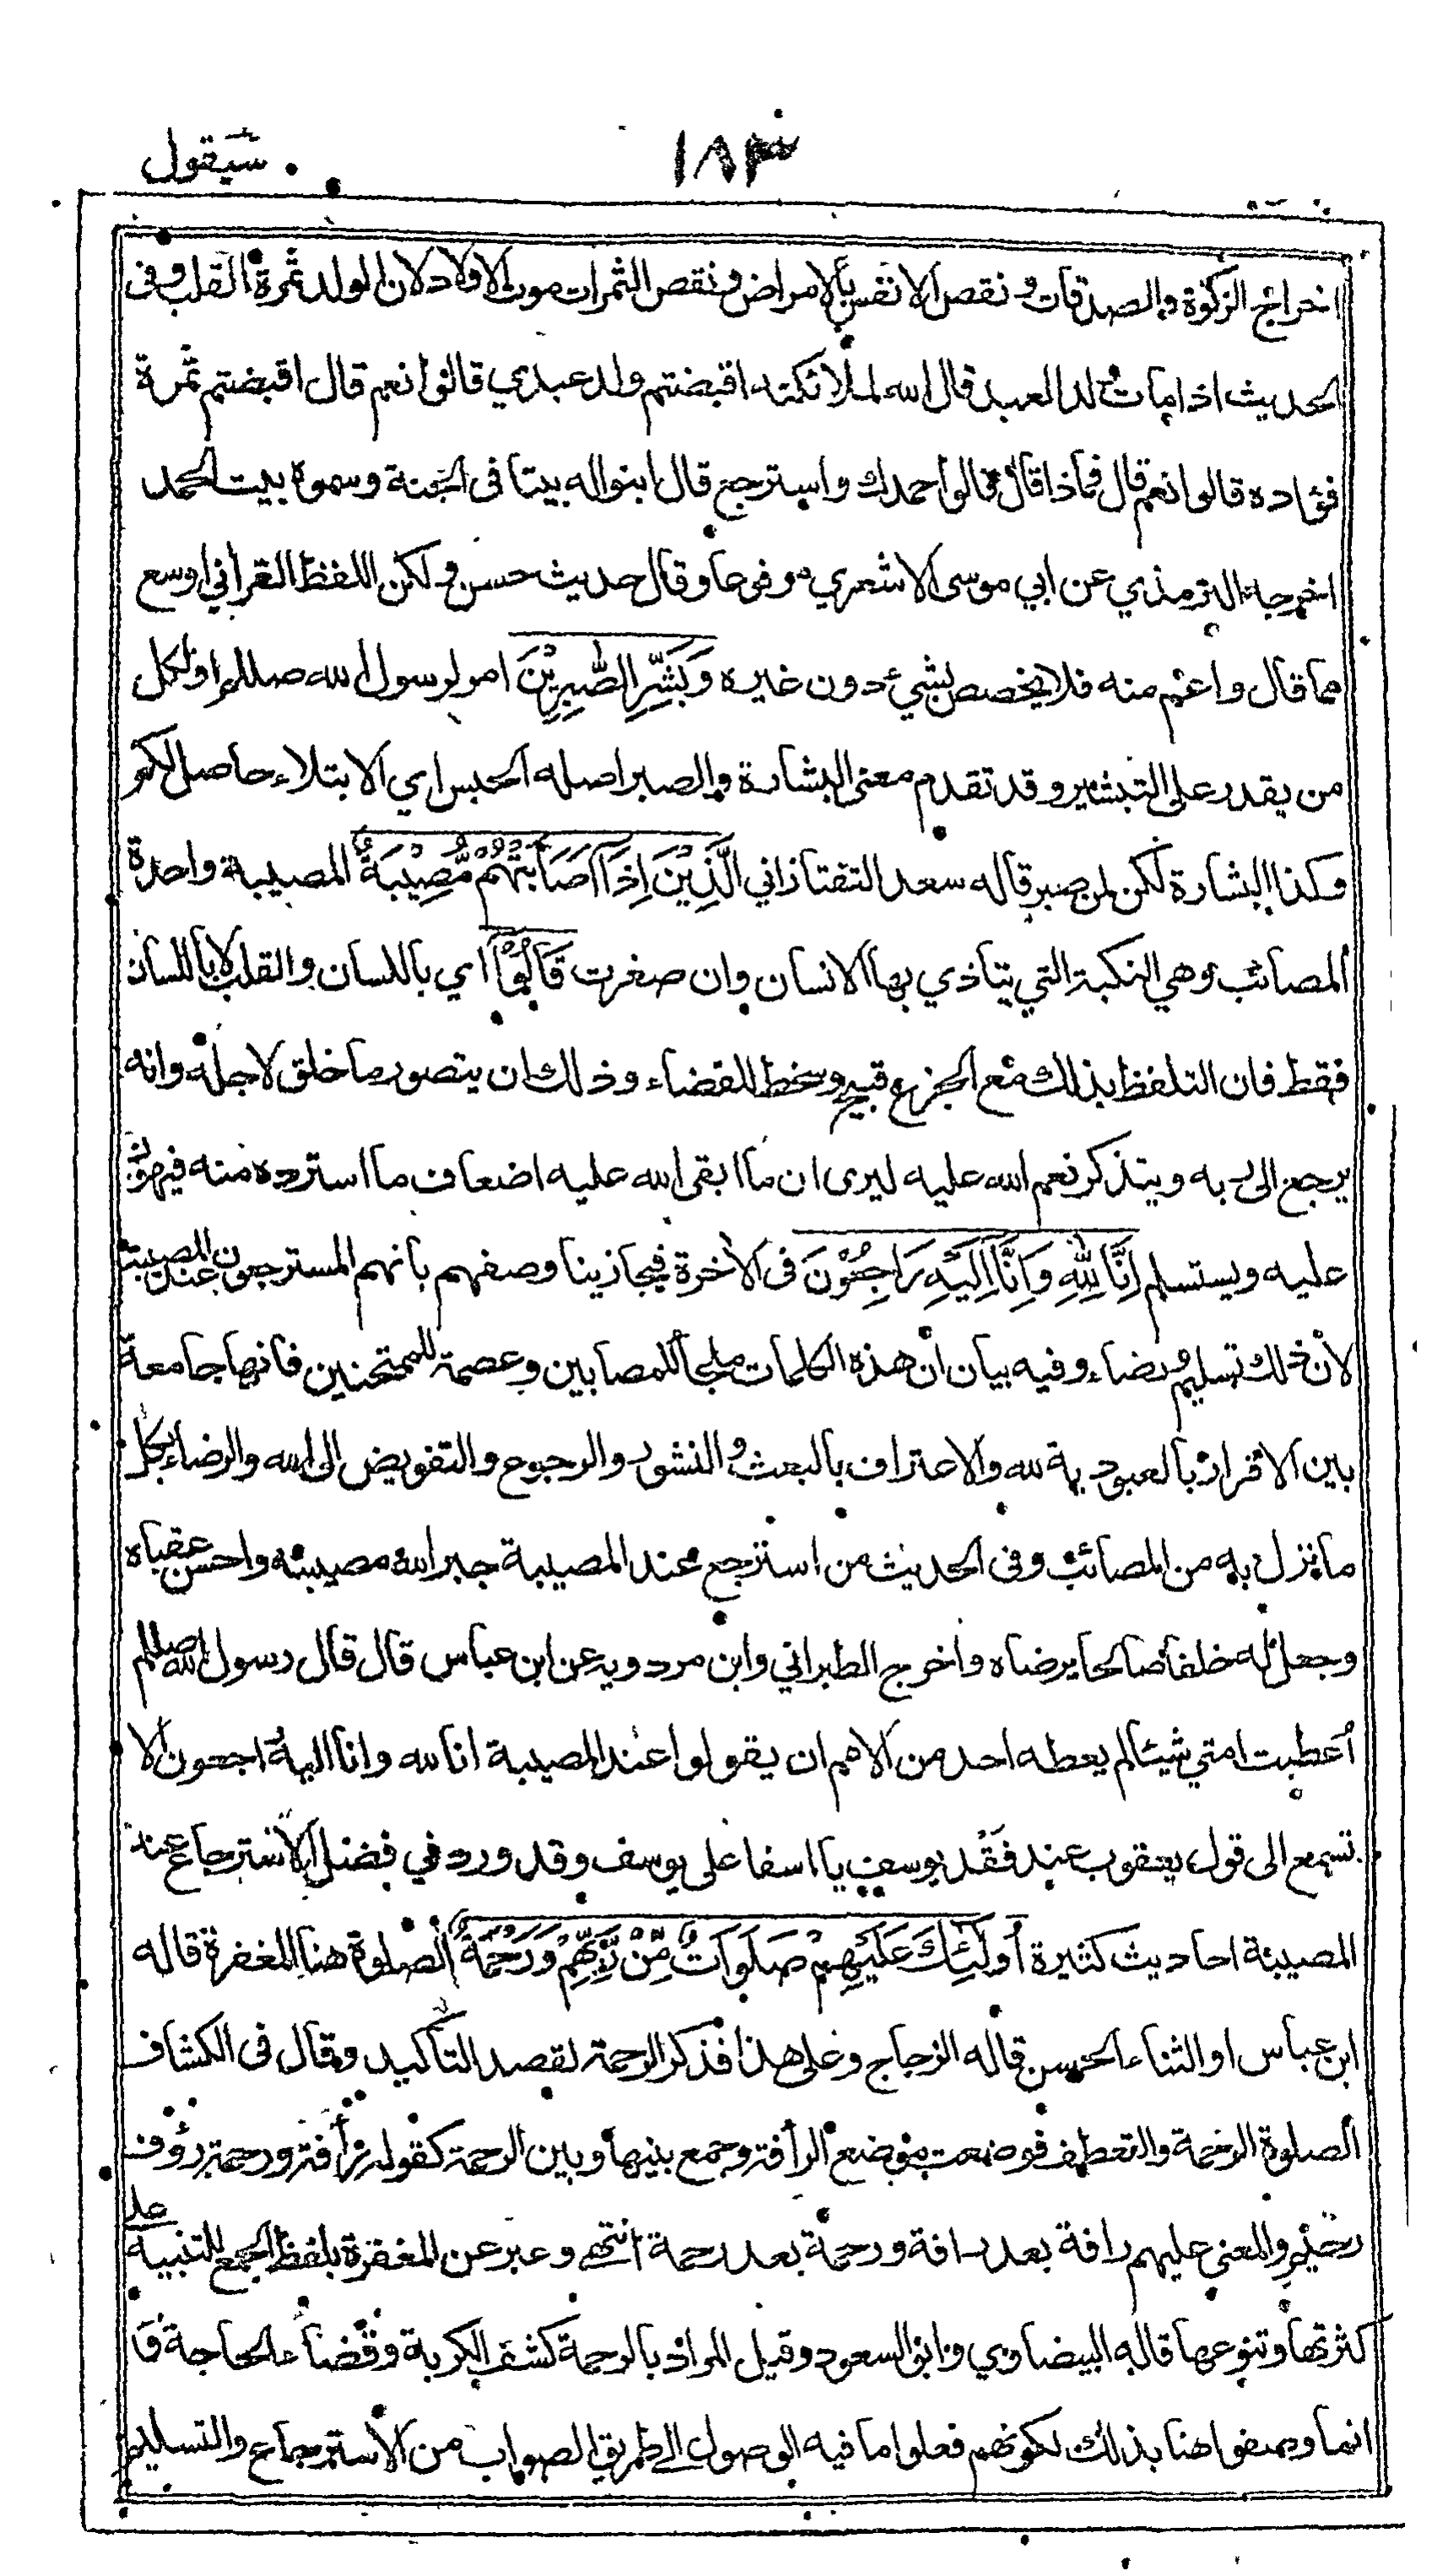 سيقول
١٨٣
اخراج الزكوة والصدقات و نقص الانفس بالامراض ونقص الثمرات موت الاولاد لان الولد ثمرة القلب وفى
الحديث اذا مات ولد العبد قال الله لملائكته اقبضتم ولد عبدي قالوا نعم قال اقبضتم ثمرة
فؤاده قالوا نعم قال فماذا قال قالوا حمدك واسترجع قال ابنوا له بيتا فى الجنة وسموه بيت الحمد
اخرجه الترمذي عن ابي موسى الاشعري مرفوعا وقال حديث حسن ولكن اللفظ القراني اوسع
مما قال واعم منه فلا يخصص بشيء دون غيره وَبَشِّرِ الصّٰبِرِيْنَ امر لرسول الله صللم او لكل
من يقدر على التبشير وقد تقدم معنى البشارة والصبر اصله الحبس اي الابتلاء حاصل لكم
وكذا البشارة لكن لمن صبر قاله سعد التفتازاني الَّذِيْنَ اِذَآ اَصَابَتْهُمْ مُّصِيْبَةٌ المصيبة واحدة
المصائب وهي النكبة التي يتاذي بها الانسان وان صغرت قَالُوْٓا اي باللسان والقلب لا باللسان
فقط فان التلفظ بذلك مع الجزع قبيح وسخط للقضاء وذلك ان يتصور ما خلق لاجله وانه
يرجع الى ربه ويتذكر نعم الله عليه ليرى ان ما ابقى الله عليه اضعاف ما استرده منه فيهون
عليه ويستسلم اِنَّا لِلّٰهِ وَاِنَّآ اِلَيْهِ رَاجِعُوْنَ فى الاخرة فيجازينا وصفهم بانهم المسترجعون عند المصيبة
لان ذلك تسليم ورضاء وفيه بيان ان هذه الكلمات ملجأ للمصابين وعصمة للممتحنين فانها جامعة
بين الاقرار بالعبودية لله والاعتراف بالبعث والنشور والرجوع والتفويض الى الله والرضاء بكل
ما نزل به من المصائب وفى الحديث من استرجع عند المصيبة جبر الله مصيبته واحسن عقباه
وجعل له خلفا صالحا يرضاه واخرج الطبراني وابن مردويه عن ابن عباس قال قال رسول الله صللم
أعطيت امتي شيئا لم يعطه احد من الامم ان يقولوا عند المصيبة انا لله وانا اليه راجعون الا
تسمع الى قول يعقوب عند فَقْد يوسف يا اسفا على يوسف وقد ورد في فضل الاسترجاع عند
المصيبة احاديث كثيرة اُولٰٓئِكَ عَلَيْهِمْ صَلَوَاتٌ مِّنْ رَّبِّهِمْ وَرَحْمَةٌ الصلوة هنا المغفرة قاله
ابن عباس او الثناء الحسن قاله الزجاج وعلى هذا فذكر الرحمة لقصد التأكيد وقال فى الكشاف
الصلوة الرحمة والتعطف فوضعت موضع الرأفة وجمع بينها وبين الرحمة كقوله رأفة ورحمة رؤف
رحيم والمعنى عليهم رافة بعد رافة ورحمة بعد رحمة انتهى وعبر عن المغفرة بلفظ الجمع للتنبيه على
كثرتها وتنوعها قاله البيضاوي وابو السعود وقيل المراد بالرحمة كشف الكربة وقضاء الحاجة و
انما وصفوا هنا بذلك لكونهم فعلوا ما فيه الوصول الى طريق الصواب من الاسترجاع والتسليم